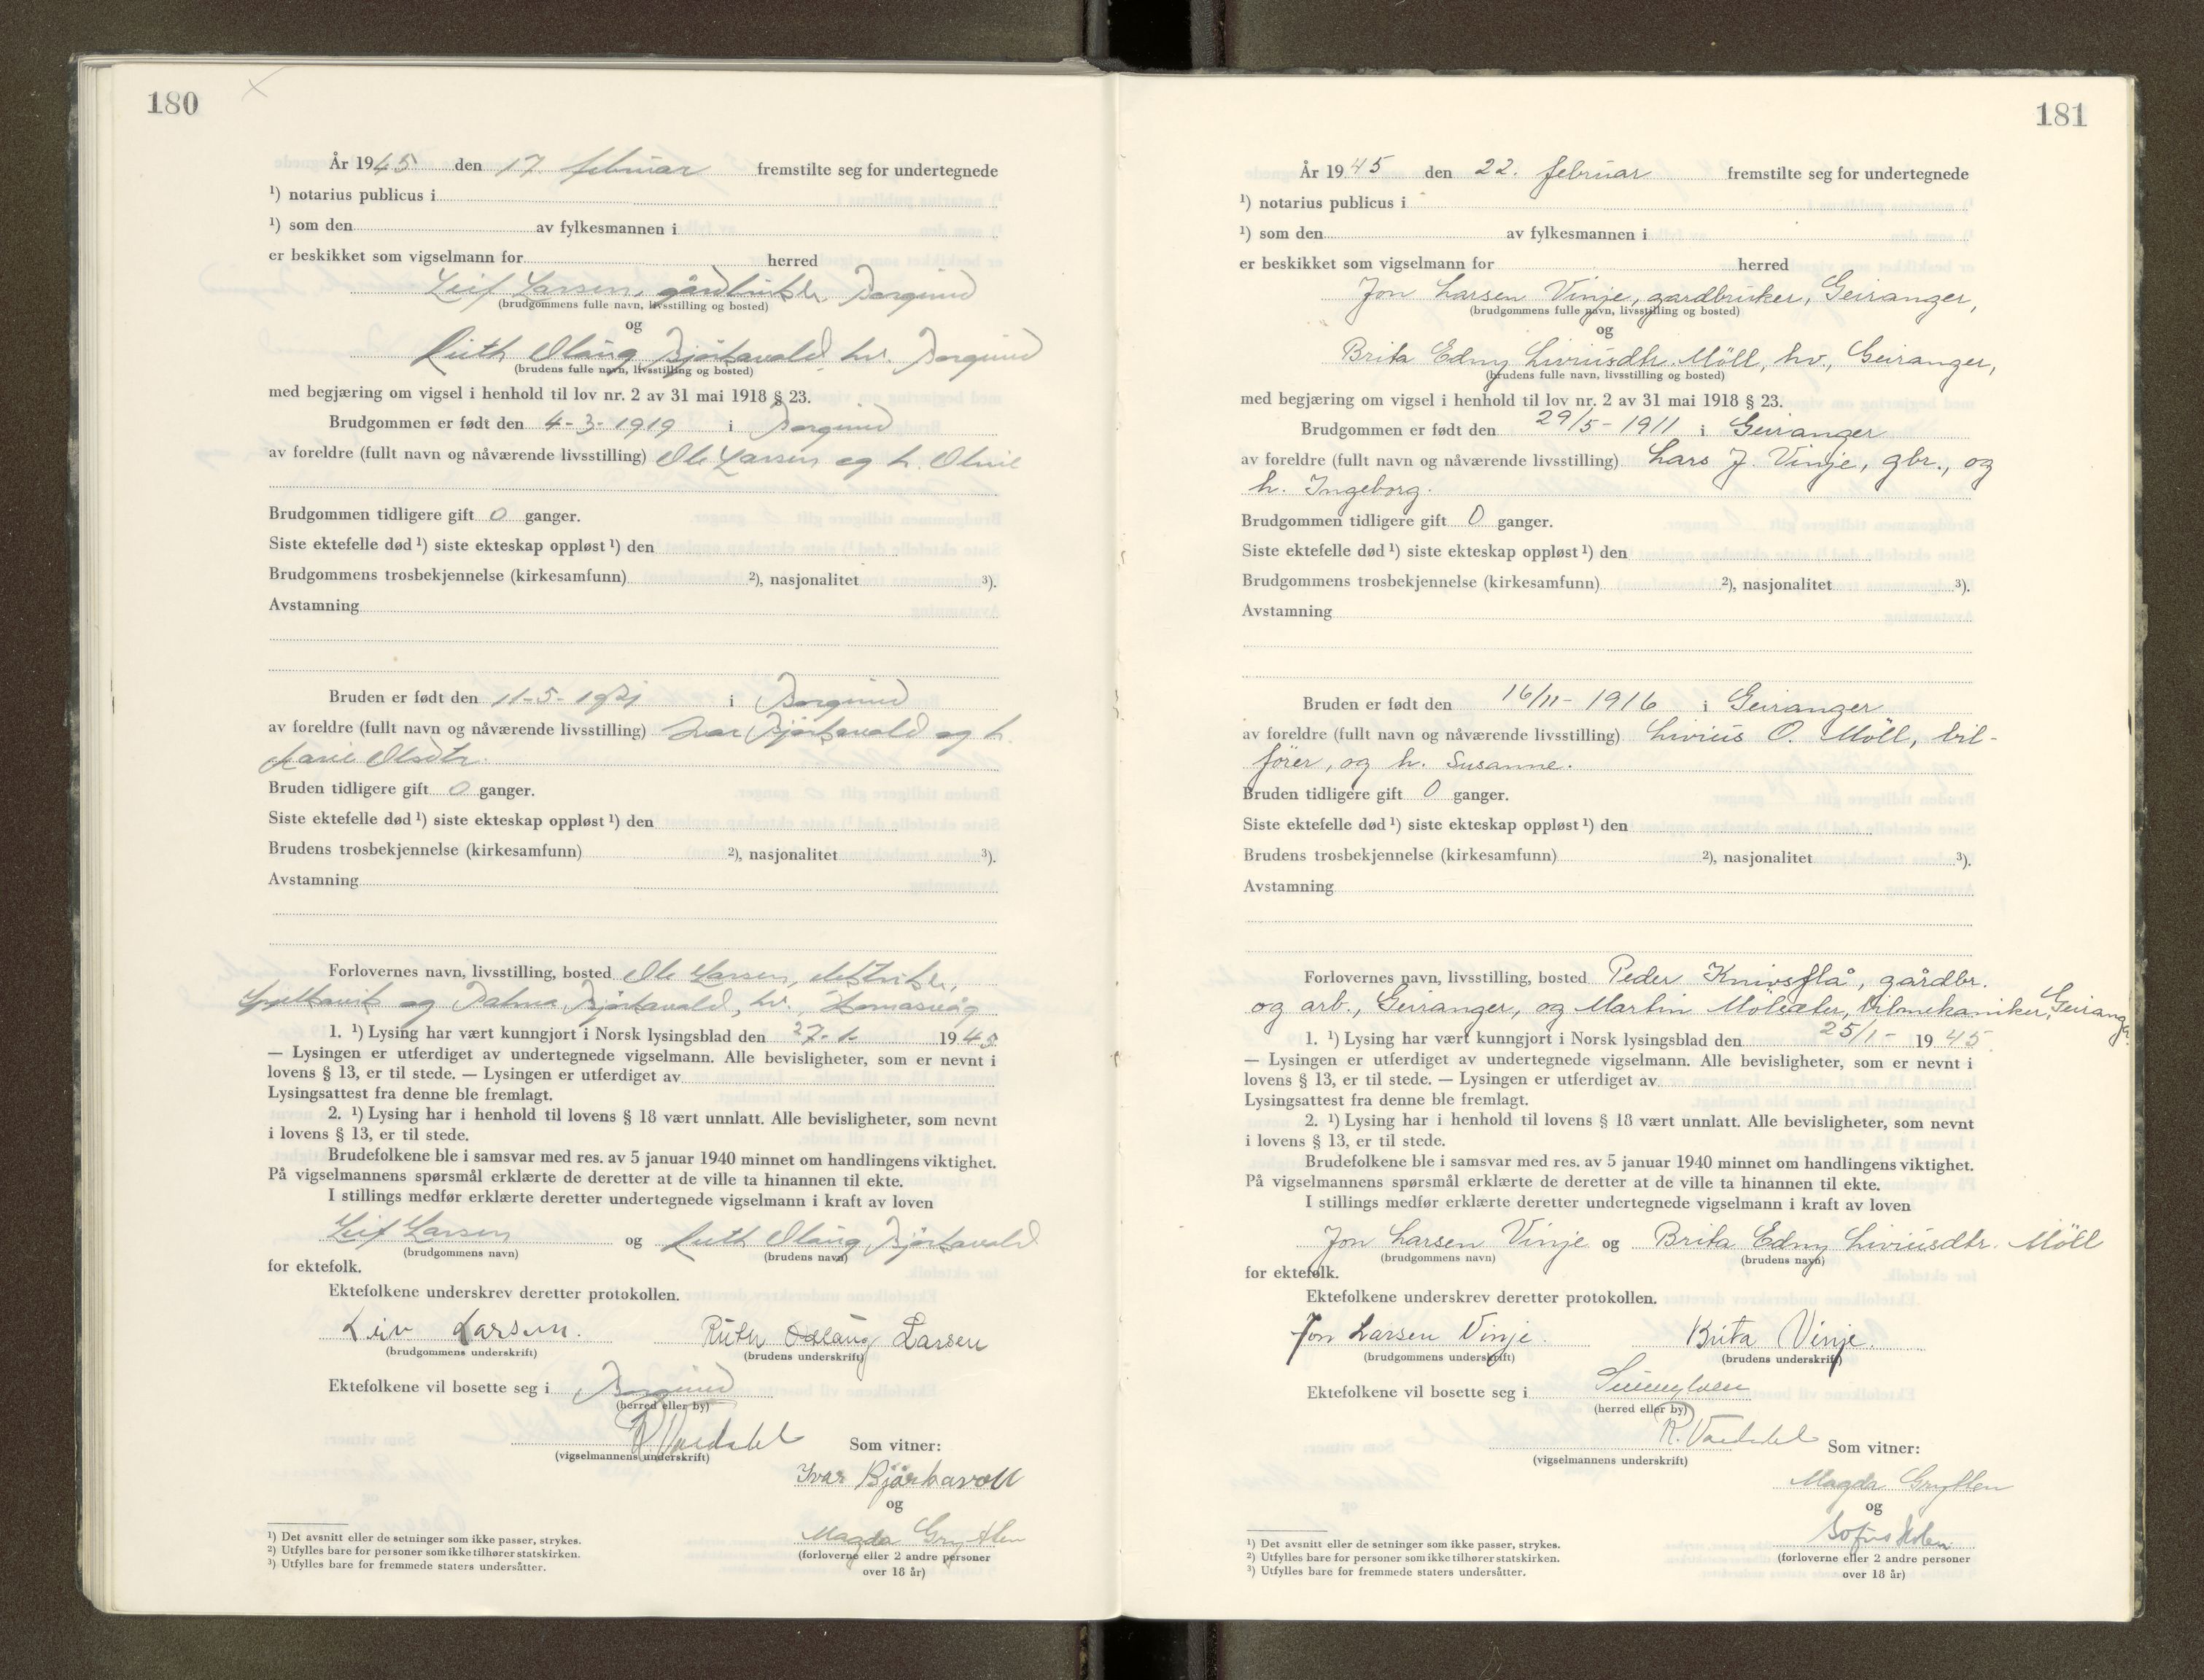 180
År 1945 den 17. februar fremstilte seg for undertegnede
¹) notarius publicus i
¹) som den av fylkesmannen i
er beskikket som vigselmann for herred
Leif Larsen, gårdbruker, Borgund
(brudgommens fulle navn, livsstilling og bosted)
og
Ruth Olaug Bjørkavald, hv. Borgund
(brudens fulle navn, livsstilling og bosted)
med begjæring om vigsel i henhold til lov nr. 2 av 31 mai 1918 § 23.
Brudgommen er født den 4-3-1919 i Borgund
av foreldre (fullt navn og nåværende livsstilling) Ole Larsen og h.
Brudgommen tidligere gift 0 ganger.
Siste ektefelle død ¹) siste ekteskap oppløst ¹) den
Brudgommens trosbekjennelse (kirkesamfunn) ²), nasjonalitet ³).
Avstamning
Bruden er født den 11-5-1921 i Borgund
av foreldre (fullt navn og nåværende livsstilling) Ivar Bjørkavald og h.
Marie Olsdtr.
Bruden tidligere gift 0 ganger.
Siste ektefelle død ¹) siste ekteskap oppløst ¹) den
Brudens trosbekjennelse (kirkesamfunn) ²), nasjonalitet ³).
Avstamning
Forlovernes navn, livsstilling, bosted Ole Larsen,
Spjelkavik og Palma Bjørkavald, hv.,
1. ¹) Lysing har vært kunngjort i Norsk lysingsblad den 27-1- 1945
— Lysingen er utferdiget av undertegnede vigselmann. Alle bevisligheter, som er nevnt i
lovens § 13, er til stede. — Lysingen er utferdiget av
Lysingsattest fra denne ble fremlagt.
2. ¹) Lysing har i henhold til lovens § 18 vært unnlatt. Alle bevisligheter, som nevnt
i lovens § 13, er til stede.
Brudefolkene ble i samsvar med res. av 5 januar 1940 minnet om handlingens viktighet.
På vigselmannens spørsmål erklærte de deretter at de ville ta hinannen til ekte.
I stillings medfør erklærte deretter undertegnede vigselmann i kraft av loven
Leif Larsen og Ruth Olaug Bjørkavald
(brudgommens navn) (brudens navn)
for ektefolk.
Ektefolkene underskrev deretter protokollen.
Leiv Larsen. Ruth Oddlaug Larsen
(brudgommens underskrift) (brudens underskrift)
Ektefolkene vil bosette seg i Borgund
(herred eller by)
R. Vardahl Som vitner:
(vigselmannens underskrift)
Ivar Bjørkavoll
og
Magda Grytten
(forloverne eller 2 andre personer
over 18 år)
¹) Det avsnitt eller de setninger som ikke passer, strykes.
²) Utfylles bare for personer som ikke tilhører statskirken.
³) Utfylles bare for fremmede staters undersåtter.
181
År 1945 den 22. februar fremstilte seg for undertegnede
¹) notarius publicus i
¹) som den av fylkesmannen i
er beskikket som vigselmann for herred
Jon Larsen Vinje, gardbruker, Geiranger,
(brudgommens fulle navn, livsstilling og bosted)
og
Brita Edny Liviusdtr. Möll, hv., Geiranger,
(brudens fulle navn, livsstilling og bosted)
med begjæring om vigsel i henhold til lov nr. 2 av 31 mai 1918 § 23.
Brudgommen er født den 29/5-1911 i Geiranger
av foreldre (fullt navn og nåværende livsstilling) Lars J. Vinje, gbr., og
h. Ingeborg.
Brudgommen tidligere gift 0 ganger.
Siste ektefelle død ¹) siste ekteskap oppløst ¹) den
Brudgommens trosbekjennelse (kirkesamfunn) ²), nasjonalitet ³).
Avstamning
Bruden er født den 16/11-1916 i Geiranger
av foreldre (fullt navn og nåværende livsstilling) Livius O. Möll, bil-
förer, og h. Susanne.
Bruden tidligere gift 0 ganger.
Siste ektefelle død ¹) siste ekteskap oppløst ¹) den
Brudens trosbekjennelse (kirkesamfunn) ²), nasjonalitet ³).
Avstamning
Forlovernes navn, livsstilling, bosted Peder Knivsflå, gårdbr.
og arb., Geiranger, og Martin Mölsæter, bilmekaniker, Geiranger
1. ¹) Lysing har vært kunngjort i Norsk lysingsblad den 25/1- 1945.
— Lysingen er utferdiget av undertegnede vigselmann. Alle bevisligheter, som er nevnt i
lovens § 13, er til stede. — Lysingen er utferdiget av
Lysingsattest fra denne ble fremlagt.
2. ¹) Lysing har i henhold til lovens § 18 vært unnlatt. Alle bevisligheter, som nevnt
i lovens § 13, er til stede.
Brudefolkene ble i samsvar med res. av 5 januar 1940 minnet om handlingens viktighet.
På vigselmannens spørsmål erklærte de deretter at de ville ta hinannen til ekte.
I stillings medfør erklærte deretter undertegnede vigselmann i kraft av loven
Jon Larsen Vinje og Brita Edny Liviusdtr. Möll
(brudgommens navn) (brudens navn)
for ektefolk.
Ektefolkene underskrev deretter protokollen.
Jon Larsen Vinje. Brita Vinje.
(brudgommens underskrift) (brudens underskrift)
Ektefolkene vil bosette seg i Sunnylven
(herred eller by)
R. Vardahl Som vitner:
(vigselmannens underskrift)
Magda Grytten
og
Sofus Holen
(forloverne eller 2 andre personer
over 18 år)
¹) Det avsnitt eller de setninger som ikke passer, strykes.
²) Utfylles bare for personer som ikke tilhører statskirken.
³) Utfylles bare for fremmede staters undersåtter.